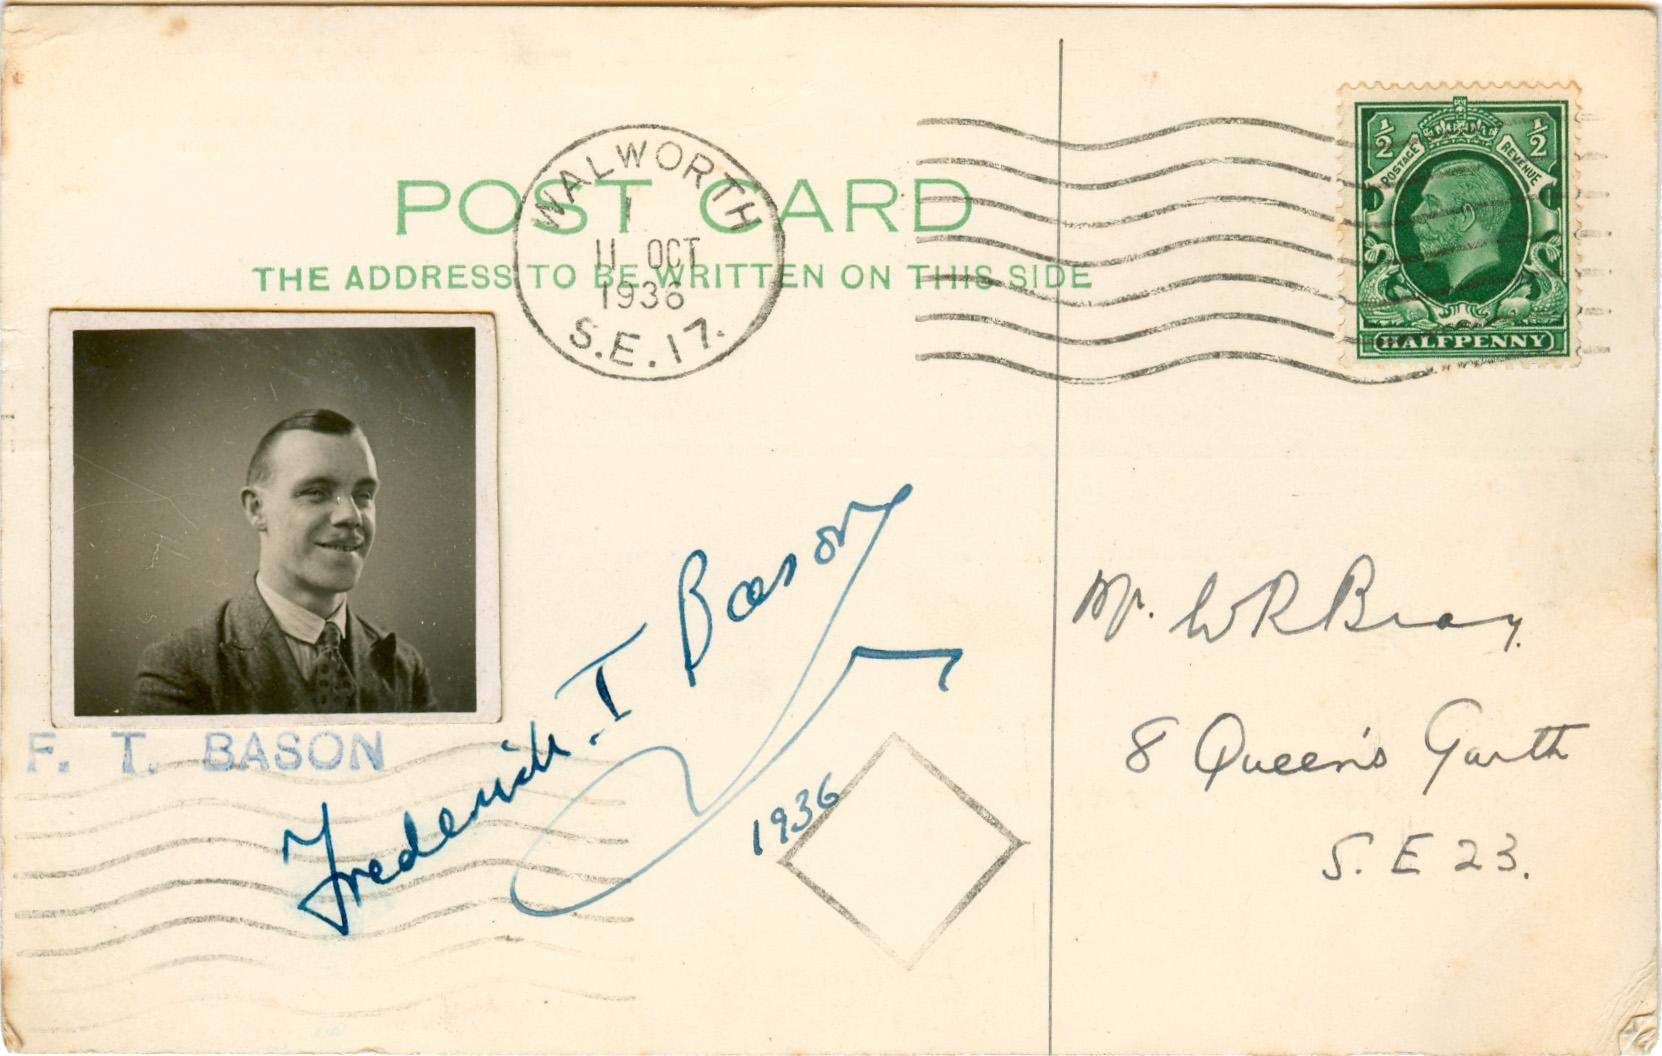 POST CARD
THE ADDRESS TO BE WRITTEN ON THIS SIDE
WALWORTH
11 OCT
1936
S.E.17.
1/2
1/2
POSTAGE
REVENUE
HALFPENNY
F. T. BASON
Frederick. T Bason
1936
Mr. W R Bray.
8 Queen's Garth
S. E 23.